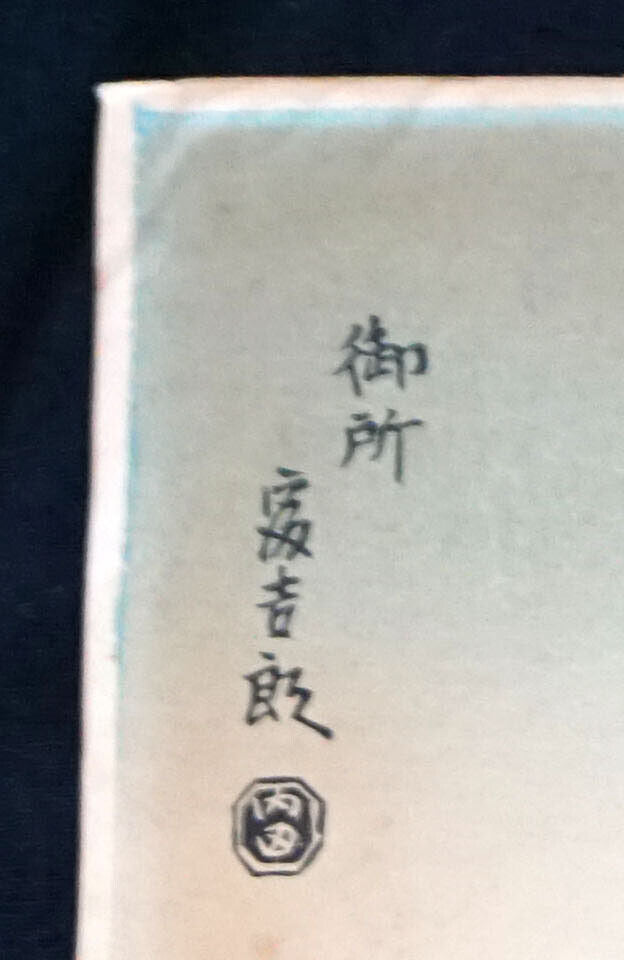 御所
富吉郎
内田